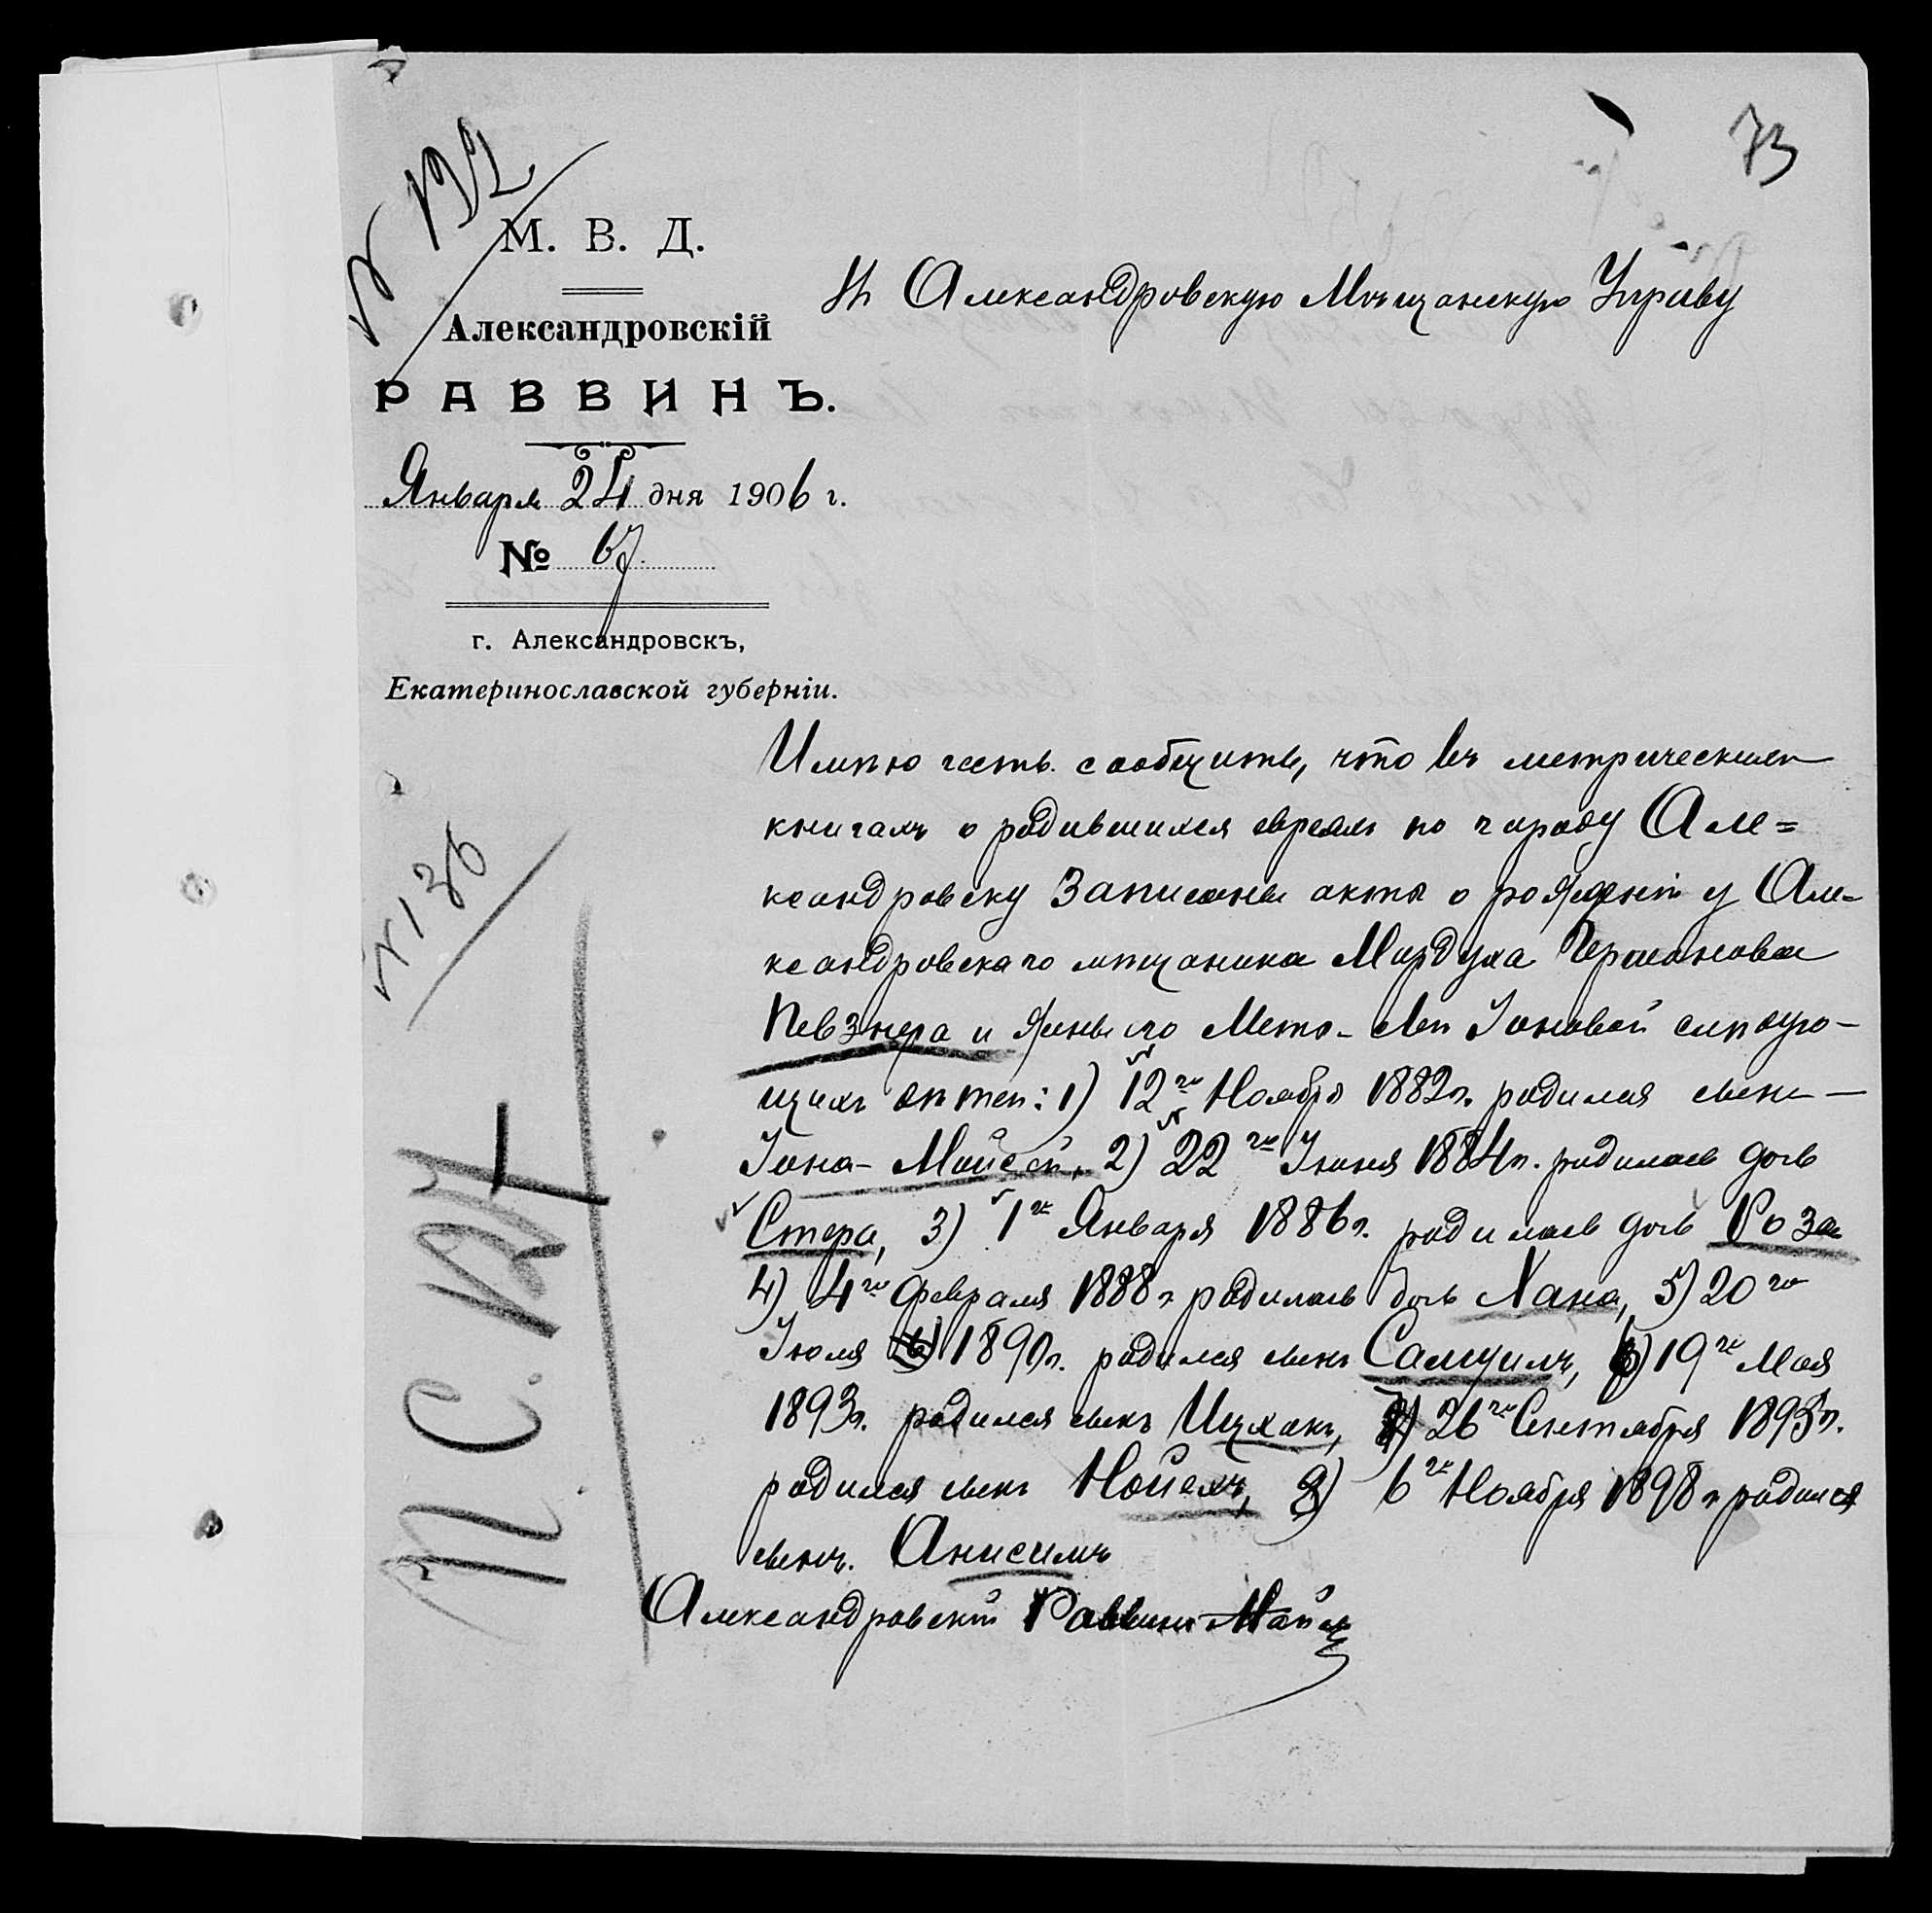 73
№ 132
М. В. Д.
Александровскій
РАВВИНЪ.
Января 24 дня 1906 г.
№ 67.
г. Александровскъ,
Екатеринославской губерніи.
Въ Александровскую Мѣщанскую Управу
Имѣю честь сообщить, что въ метрическихъ
книгахъ о родившихся евреяхъ по городу Але=
ксандровску записаны акты о рожденіи у Але-
ксандровскаго мѣщанина Мордуха Германова
Певзнера и жены его Іоновой слѣдую-
щихъ дѣтей: 1) 12го Ноября 1882г. родился сынъ —
Іона-Мойсей, 2) 22го Іюня 1884г. родилась дочь
Стера, 3) 1го Января 1886г. родилась дочь Роза
4) 4го Февраля 1888г. родилась дочь Хана, 5) 20го
Іюля 1890г. родился сынъ Самуилъ, 6) 19го Мая
1893г. родился сынъ Ицхокъ, 7) 26го Сентября 1895г.
родился сынъ Нойехъ, 8) 6го Ноября 1898г. родился
сынъ. Анисимъ
Александровскій Раввинъ
№ 136
П. С. 124